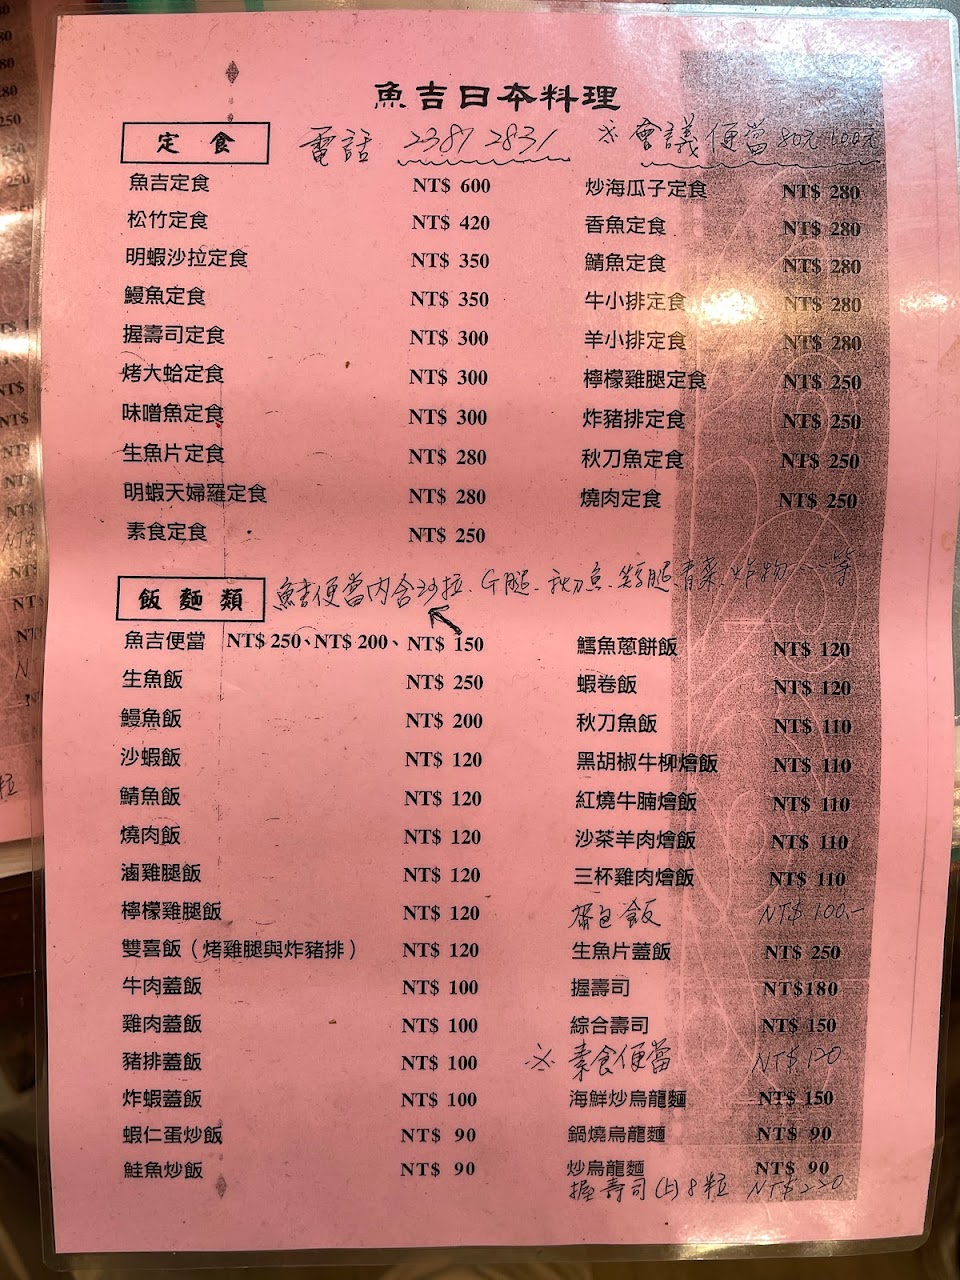 魚吉日本料理
定食
電話 2381 2831 ※會議便當80元.100元
魚吉定食 NT$ 600
松竹定食 NT$ 420
明蝦沙拉定食 NT$ 350
鰻魚定食 NT$ 350
握壽司定食 NT$ 300
烤大蛤定食 NT$ 300
味噌魚定食 NT$ 300
生魚片定食 NT$ 280
明蝦天婦羅定食 NT$ 280
素食定食 NT$ 250
炒海瓜子定食 NT$ 280
香魚定食 NT$ 280
鯖魚定食 NT$ 280
牛小排定食 NT$ 280
羊小排定食 NT$ 280
檸檬雞腿定食 NT$ 250
炸豬排定食 NT$ 250
秋刀魚定食 NT$ 250
燒肉定食 NT$ 250
飯麵類
魚吉便當內含沙拉.G腿.秋刀魚.青菜.炸物……等
魚吉便當 NT$ 250、NT$ 200、NT$ 150
生魚飯 NT$ 250
鰻魚飯 NT$ 200
沙蝦飯 NT$ 120
鯖魚飯 NT$ 120
燒肉飯 NT$ 120
滷雞腿飯 NT$ 120
檸檬雞腿飯 NT$ 120
雙喜飯（烤雞腿與炸豬排） NT$ 120
牛肉蓋飯 NT$ 100
雞肉蓋飯 NT$ 100
豬排蓋飯 NT$ 100
炸蝦蓋飯 NT$ 100
蝦仁蛋炒飯 NT$ 90
鮭魚炒飯 NT$ 90
鱈魚蔥餅飯 NT$ 120
蝦卷飯 NT$ 120
秋刀魚飯 NT$ 110
黑胡椒牛柳燴飯 NT$ 110
紅燒牛腩燴飯 NT$ 110
沙茶羊肉燴飯 NT$ 110
三杯雞肉燴飯 NT$ 110
飯 NT$ 100.-
生魚片蓋飯 NT$ 250
握壽司 NT$180
綜合壽司 NT$ 150
※素食便當 NT$ 120
海鮮炒烏龍麵 NT$ 150
鍋燒烏龍麵 NT$ 90
炒烏龍麵 NT$ 90
握壽司(上)8粒 NT$220